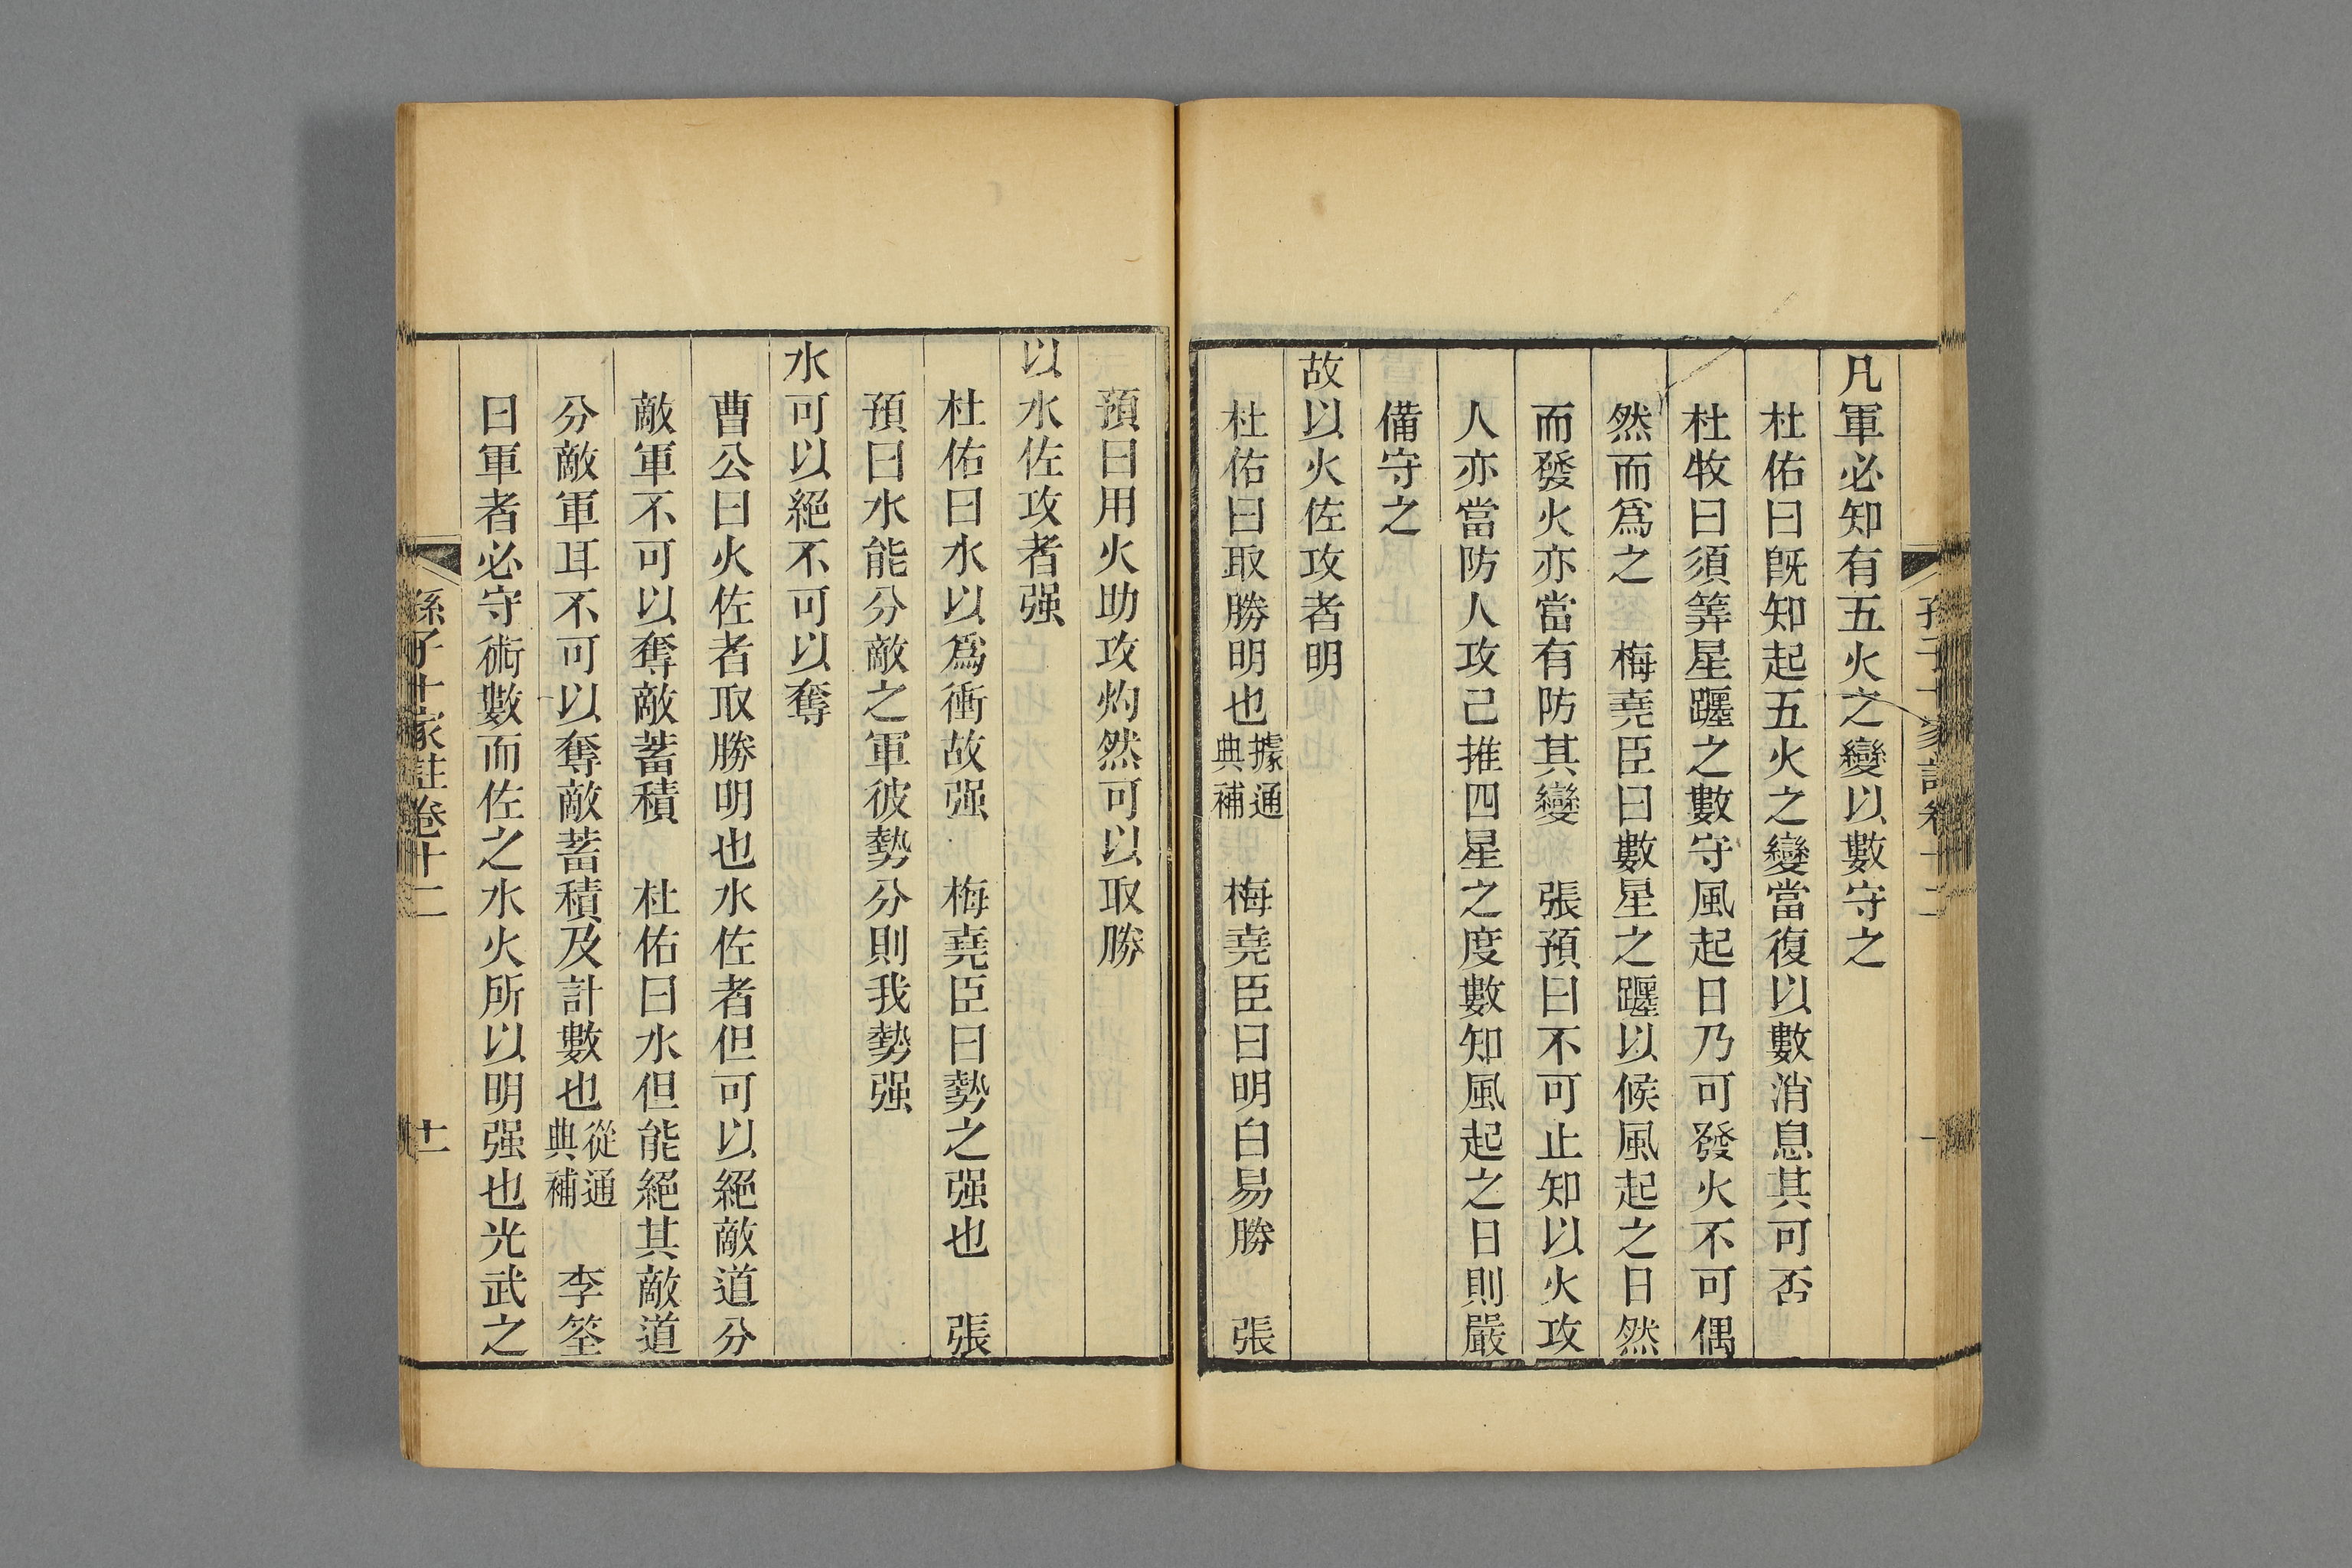 凡軍必知有五火之變以數守之
杜佑曰旣知起五火之變當復以數消息其可否
杜牧曰須筭星躔之數守風起日乃可發火不可偶
然而爲之　梅堯臣曰數星之躔以候風起之日然
而發火亦當有防其變　張預曰不可止知以火攻
人亦當防人攻己推四星之度數知風起之日則嚴
備守之
故以火佐攻者明
杜佑曰取勝明也據通典補　梅堯臣曰明白易勝　張
預曰用火助攻灼然可以取勝
以水佐攻者强
杜佑曰水以爲衝故强　梅堯臣曰勢之强也　張
預曰水能分敵之軍彼勢分則我勢强
水可以絕不可以奪
曹公曰火佐者取勝明也水佐者但可以絕敵道分
敵軍不可以奪敵蓄積　杜佑曰水但能絕其敵道
分敵軍耳不可以奪敵蓄積及計數也從通典補　李筌
曰軍者必守術數而佐之水火所以明强也光武之
孫子十家註卷十二
十一